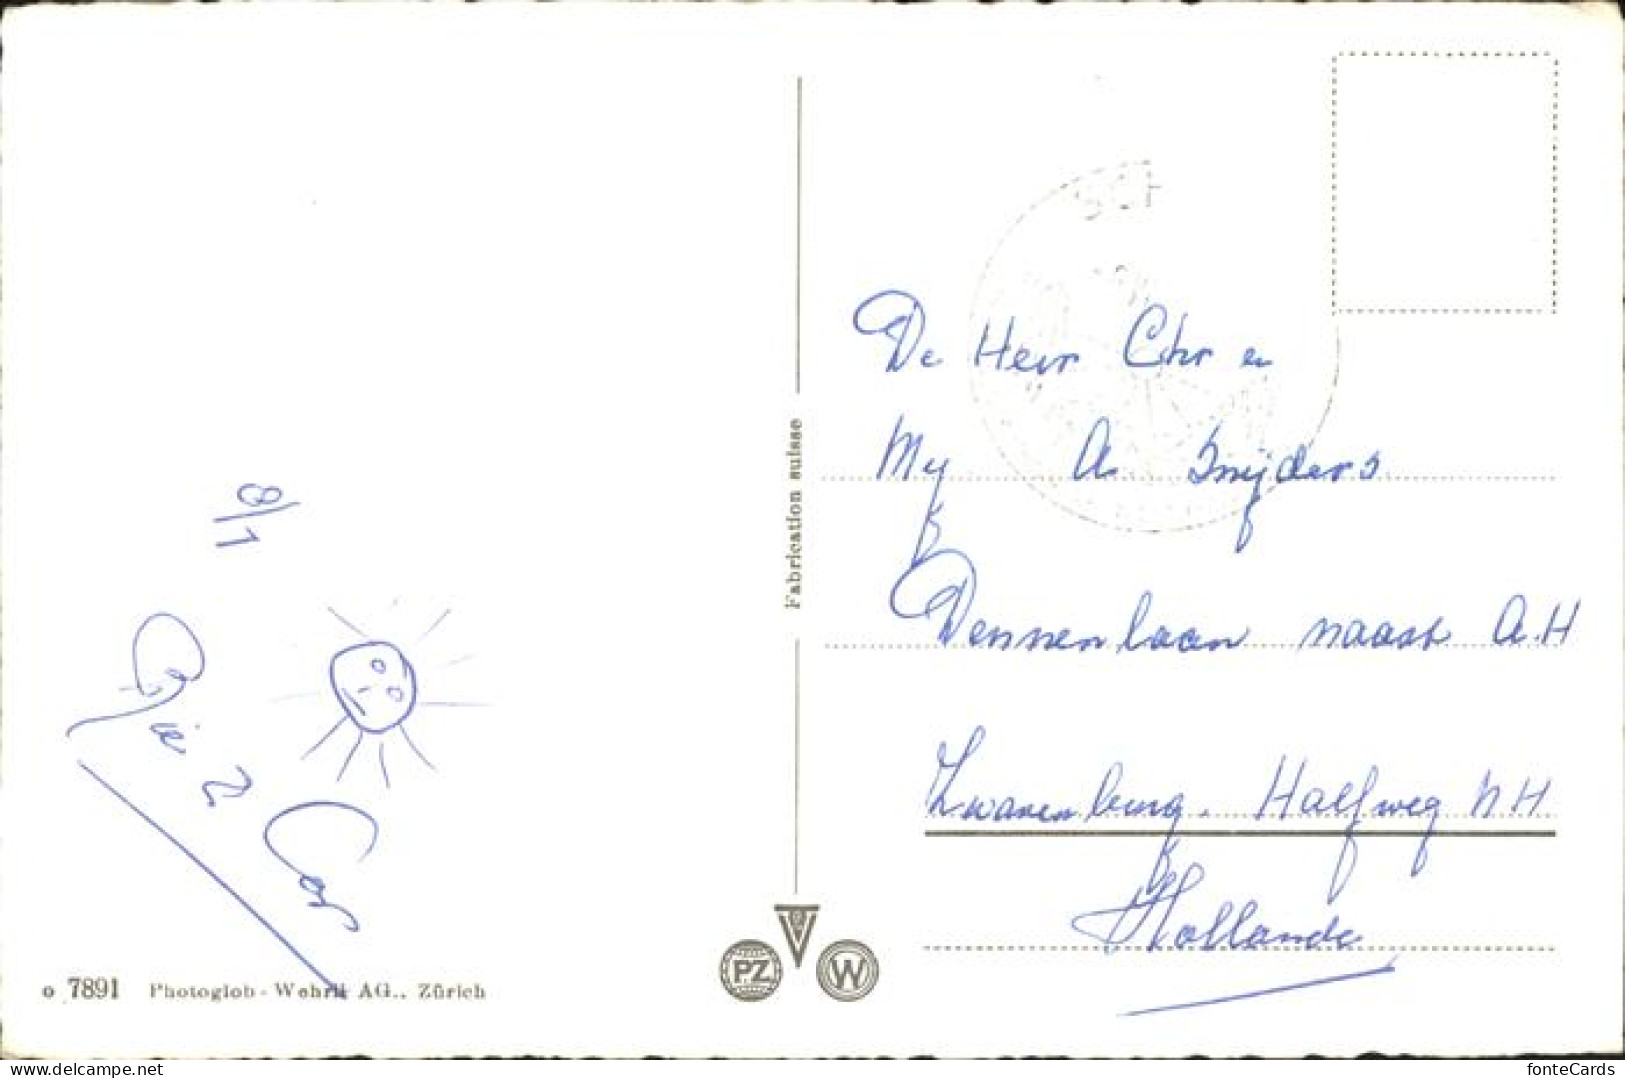 8/1
Cor
o 7891 Photoglob-Wehrli AG., Zürich
Fabrication suisse
PZ
W
De Heer Chr en
Mej A Snijders
Dennenlaan naast A.H
Zwanenburg. Halfweg N H
Hollande
delcampe.net
fonteCards